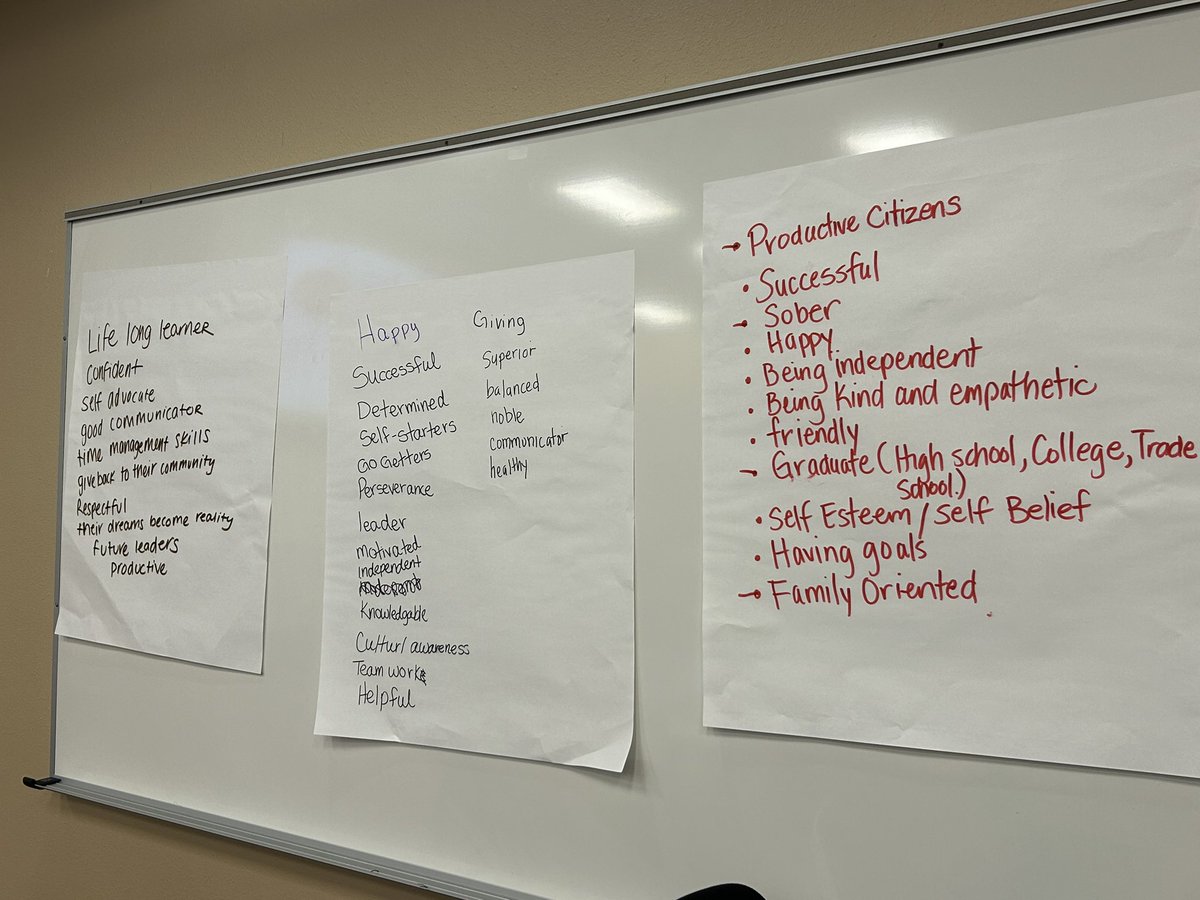 Life long learner
Confident
self advocate
good communicator
time management skills
give back to their community
Respectful
their dreams become reality
future leaders
productive
Happy
Successful
Determined
Self-starters
Go Getters
Perseverance
leader
motivated
Independent
Knowledgable
Cultur/ awareness
Team work
Helpful
Giving
Superior
balanced
noble
communicator
healthy
→ Productive Citizens
• Successful
→ Sober
• Happy
• Being independent
• Being Kind and empathetic
• friendly
→ Graduate (High school, College, Trade
School.)
• Self Esteem / Self Belief
• Having goals
→ Family Oriented